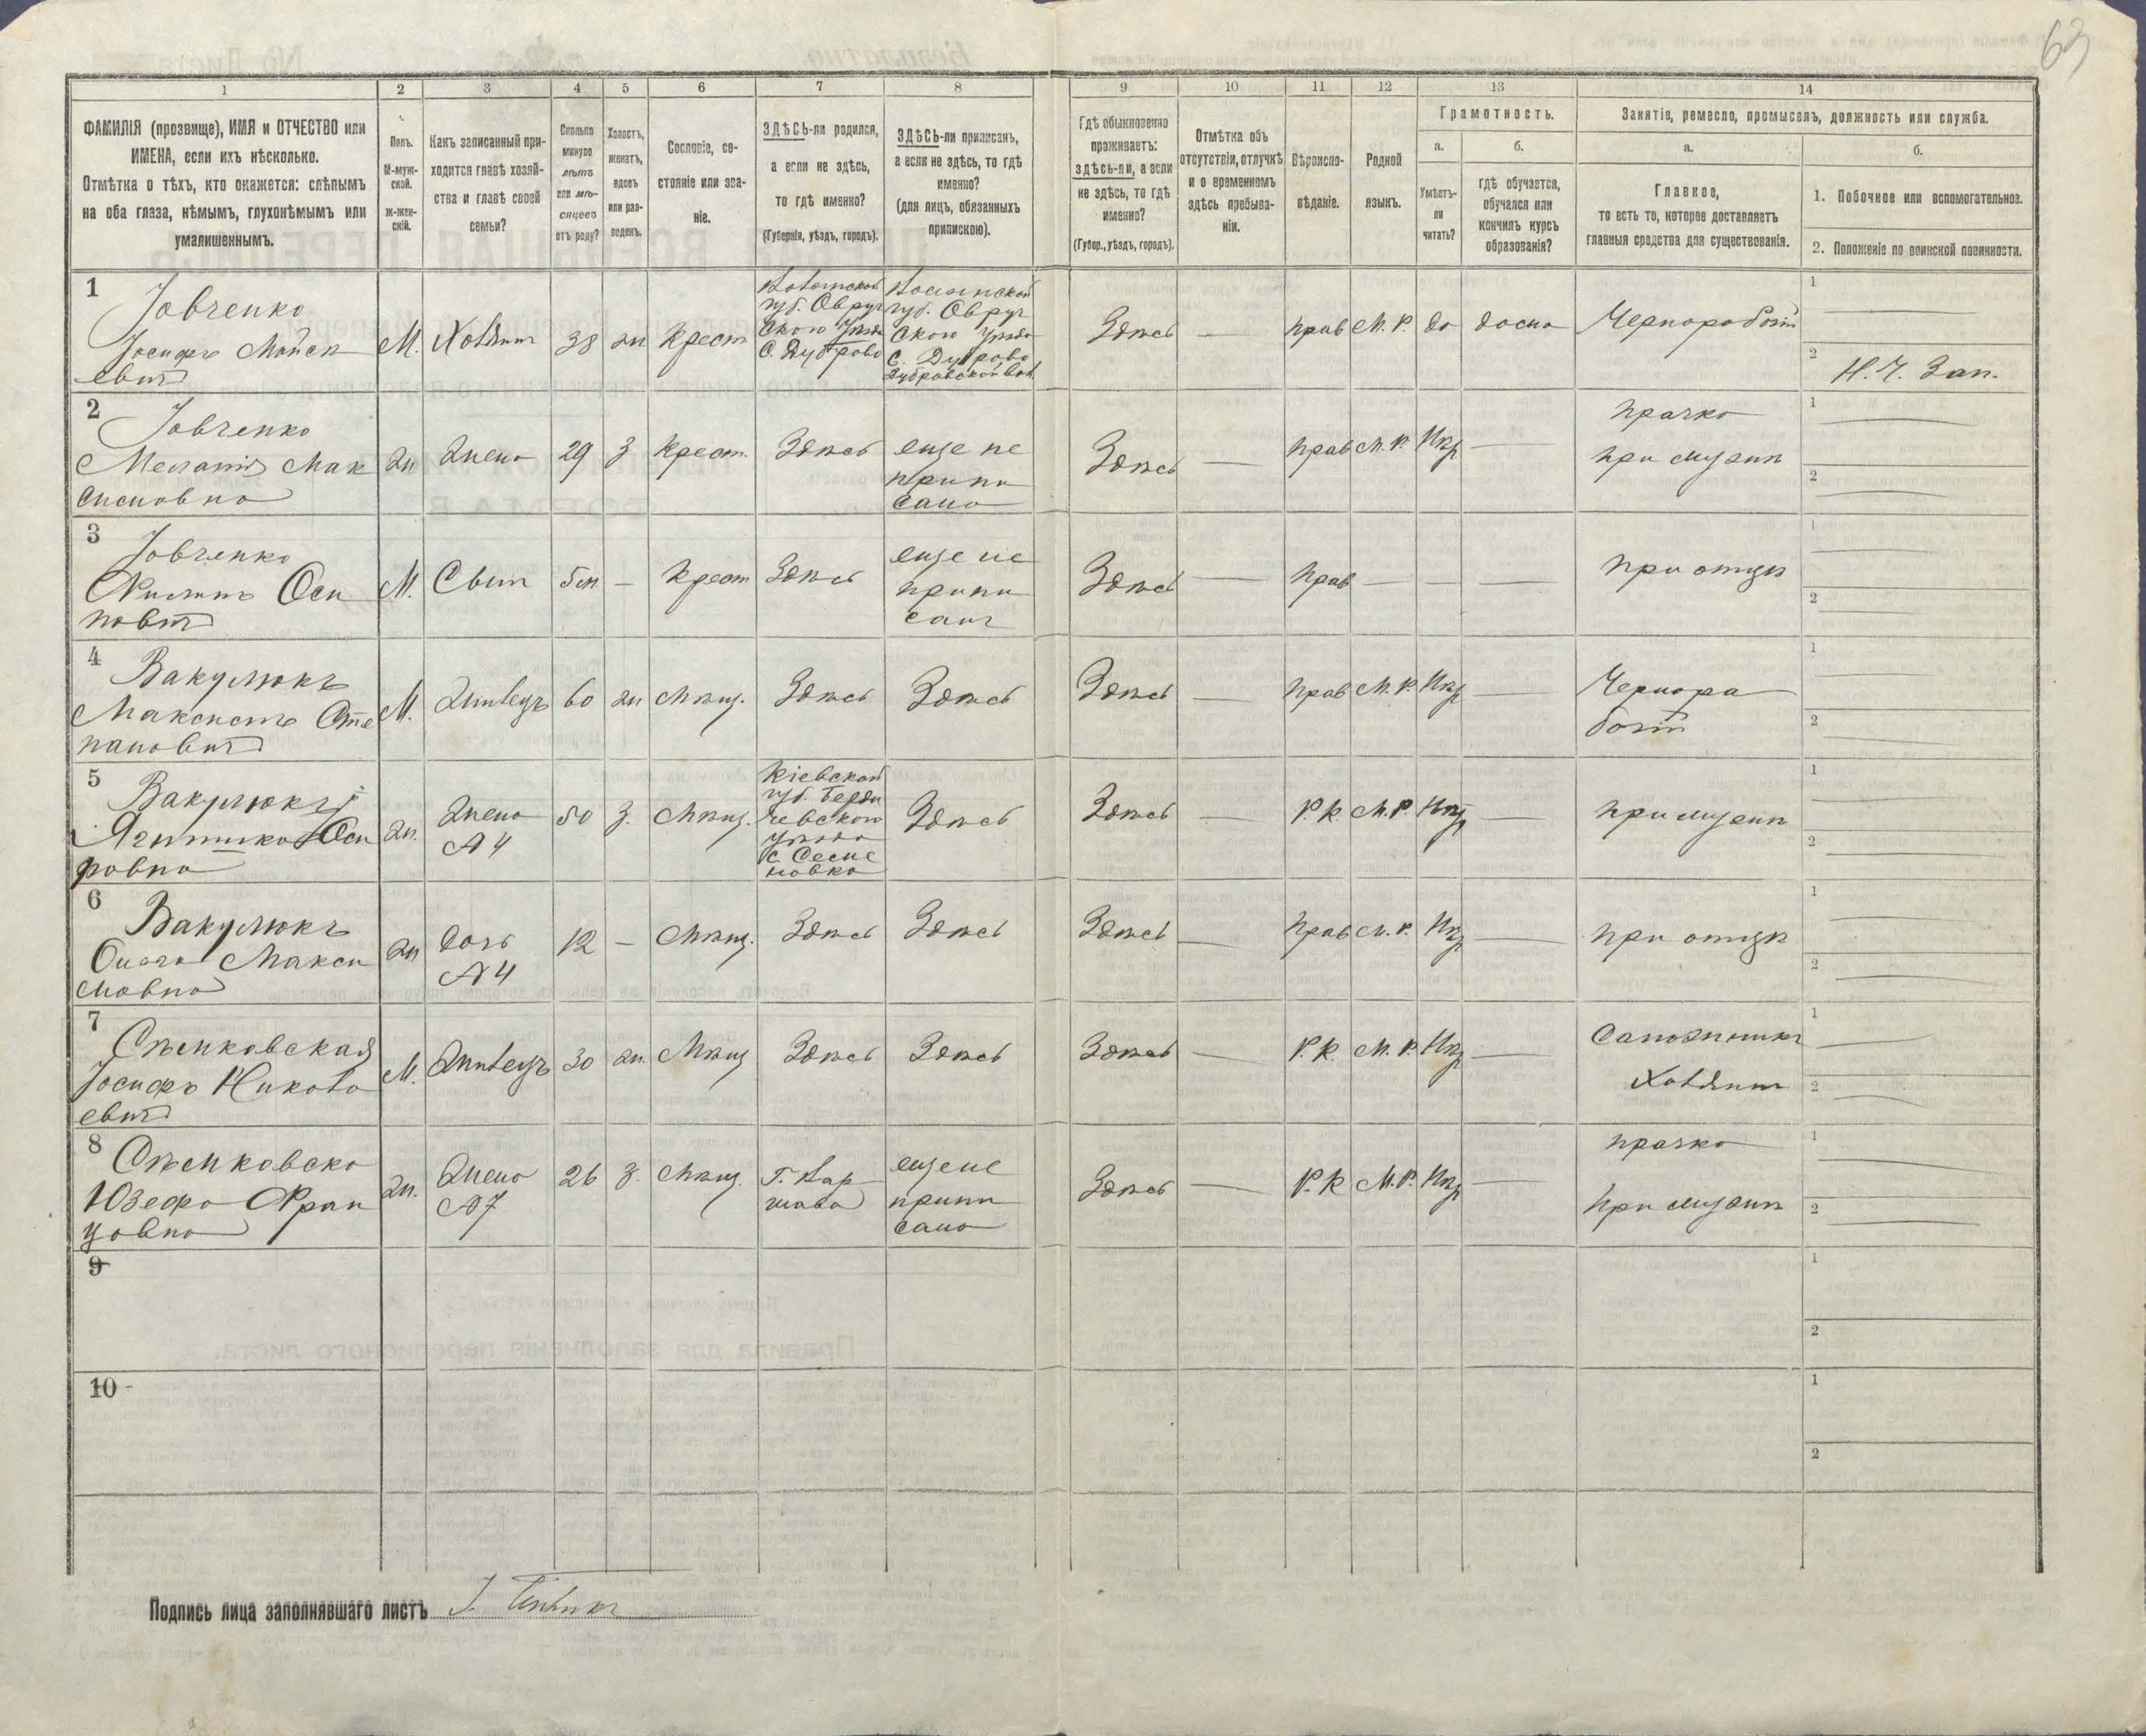 63
1
2
3
4
5
6
7
8
9
10
11
12
13
14
ФАМИЛІЯ (прозвище), ИМЯ и ОТЧЕСТВО или
ИМЕНА, если ихъ нѣсколько.
Отмѣтка о тѣхъ, кто окажется: слѣпымъ
на оба глаза, нѣмымъ, глухонѣмымъ или
умалишеннымъ.
Полъ.
М-муж-
ской.
ж-жен-
скій.
Какъ записанный при-
ходится главѣ хозяй-
ства и главѣ своей
семьи?
Сколько
минуло
лѣтъ
или мѣ-
сяцевъ
отъ роду?
Холостъ,
женатъ,
вдовъ
или раз-
веденъ.
Сословіе, со-
стояніе или зва-
ніе.
ЗДѢСЬ-ли родился,
а если не здѣсь,
то гдѣ именно?
(Губернія, уѣздъ, городъ).
ЗДѢСЬ-ли приписанъ,
а если не здѣсь, то гдѣ
именно?
(для лицъ, обязанныхъ
припискою).
Гдѣ обыкновенно
проживаетъ:
здѣсь-ли, а если
не здѣсь, то гдѣ
именно?
(Губер., уѣздъ, городъ).
Отмѣтка объ
отсутствіи, отлучкѣ
и о временномъ
здѣсь пребыва-
ніи.
Вѣроиспо-
вѣданіе.
Родной
языкъ.
Грамотность.
а.
Умѣетъ-
ли
читать?
б.
гдѣ обучается,
обучался или
кончилъ курсъ
образованія?
Занятіе, ремесло, промыселъ, должность или служба.
а.
Главное,
то есть то, которое доставляетъ
главныя средства для существованія.
б.
1. Побочное или вспомогательное.
2. Положеніе по воинской повинности.
1
Іовченко
Іосифъ Мойсе
евичъ
М. Хозяинъ 38 ж Крест
Волынской
губ. Овруч
ского Уезда
С. Дуброво
Волынской
губ. Овруч
ского Уезда
С. Дуброво
Дубровской Вол.
Здѣсь — Прав М. Р. да дома Чернорабочій
1
2 Н. Ч. Зап.
2
Іовченко
Мелания Мак
симовна
ж жена 29 з Крест. Здѣсь
еще не
припи
сана
Здѣсь — Прав М. Р. Нѣт —
прачка
при мужѣ
1
2
3
Іовченко
Филипъ Оси
повичъ
М. Сынъ — Крест Здѣсь
еще не
припи
санъ
Здѣсь — Прав — — — при отцѣ
1
2
4
Вакулюкъ
Максимъ Сте
пановичъ
М. Жилецъ 60 ж Мѣщ. Здѣсь Здѣсь
Здѣсь — Прав М. Р. Нѣт —
Чернора
бочій
1
2
5
Вакулюкъ
ж. Жена
№ 4
50 з. Мѣщ.
Кіевской
губ. Берди
чевского
уезда
Здѣсь
Здѣсь — Р. К. М. Р. Нѣт — при мужѣ
1
2
6
Вакулюкъ
Макси
мовна
ж Дочь
№ 4
12 — Мѣщ. Здѣсь Здѣсь
Здѣсь — Прав М. Р. Нѣт — при отцѣ
1
2
7
Іосифъ Никола
евичъ
М. Жилецъ 30 ж. Мѣщ Здѣсь Здѣсь
Здѣсь — Р. К. М. Р. Нѣт —
Сапожникъ
Хозяинъ
1
2
8
Юзефа Фран
цовна
ж. Жена
№ 7
26 з. Мѣщ.
Г. Вар
шава
еще не
припи
сана
Здѣсь — Р. К М. Р. Нѣт —
прачка
при мужѣ
1
2
9
1
2
10
1
2
Подпись лица заполнявшаго листъ